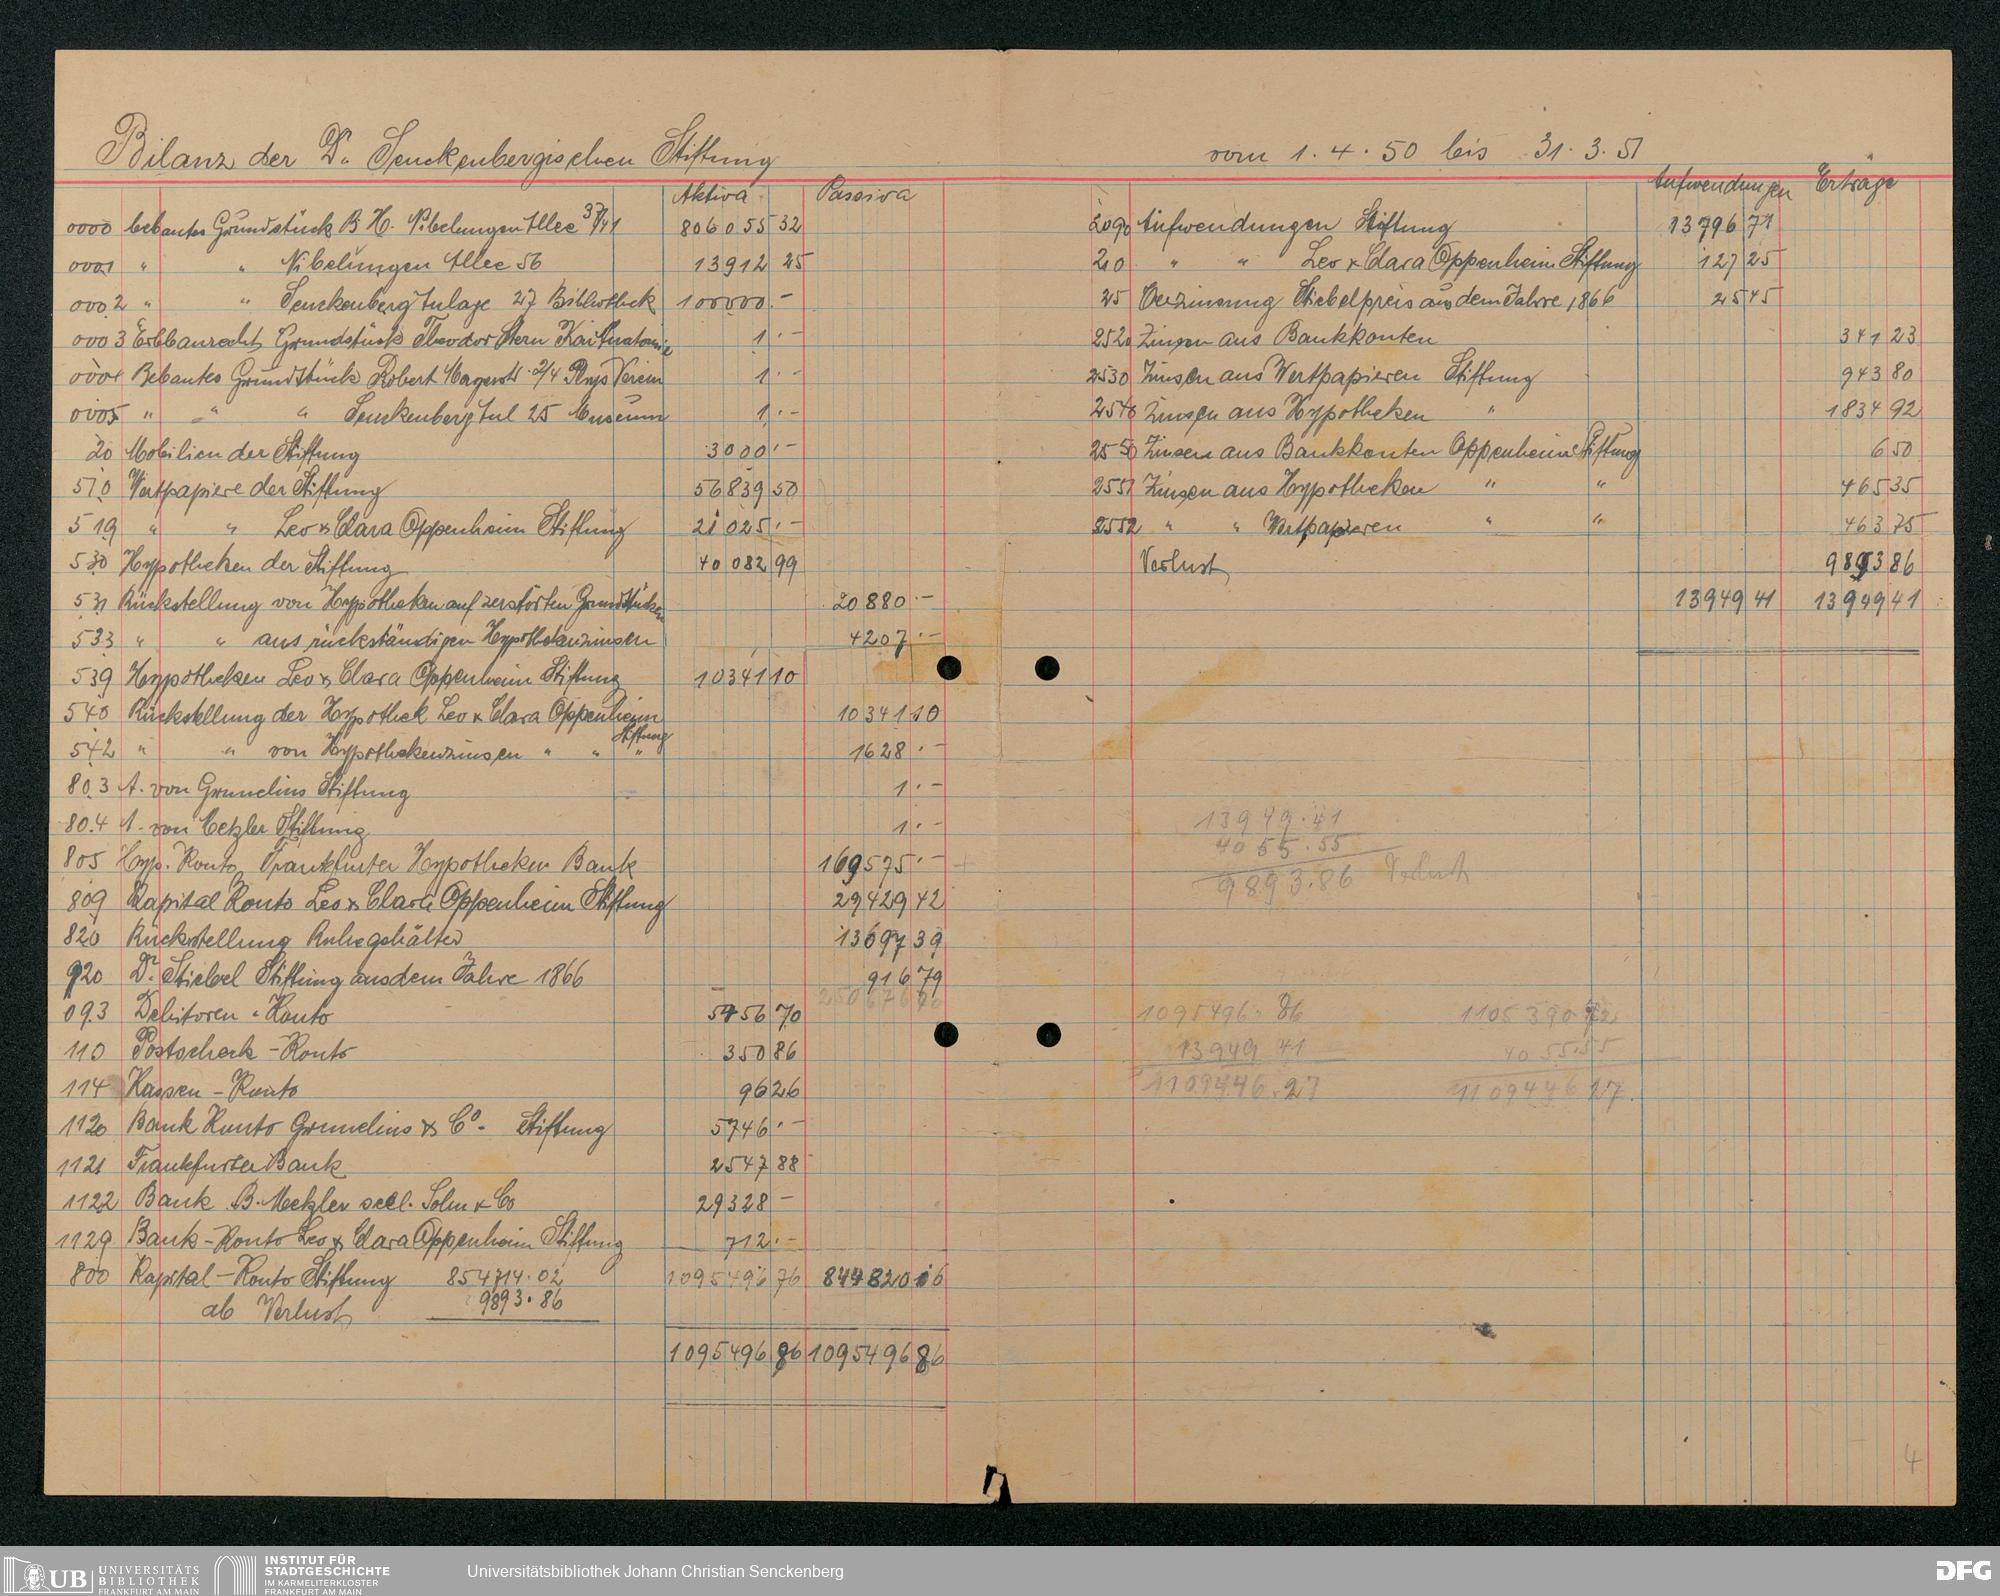 Bilanz der Dr. Senckenbergischen Stiftung vom 1.4.50 bis 31.3.51
Aktiva Passiva
0000 bebautes Grundstück B.H. Nibelungen Allee 37/41 806055 32
0001 " " Nibelungen Allee 56 13912 25
0002 " " Senckenberg Anlage 27 Bibliothek 100000.-
0003 Erbbaurecht Grundstück Theodor Stern Kai Anatomie 1.-
0004 Bebautes Grundstück Robert Mayerstr. 2/4 Phys Verein 1.-
0005 " " " Senckenberg Anl 25 Museum 1.-
20 Mobilien der Stiftung 3000.-
510 Wertpapiere der Stiftung 56839 50
519 " " Leo & Clara Oppenheim Stiftung 21025.-
530 Hypotheken der Stiftung 40082 99
531 Rückstellung von Hypotheken auf zerstörten Grundstücken 20880.-
533 " " aus rückständigen Hypothekenzinsen 4207.-
539 Hypotheken Leo & Clara Oppenheim Stiftung 10341 10
540 Rückstellung der Hypothek Leo & Clara Oppenheim Stiftung 10341 10
542 " " von Hypothekenzinsen " " " 1628.-
803 A. von Grunelius Stiftung 1.-
804 A. von Metzler Stiftung 1.-
805 Hyp. Konto Frankfurter Hypotheken Bank 169575.-
809 Kapital Konto Leo & Clara Oppenheim Stiftung 29429 42
820 Rückstellung Ruhegehälter 13697 39
920 Dr. Stiebel Stiftung aus dem Jahre 1866 916 79
093 Debitoren - Konto 5456 70
110 Postscheck - Konto 350 86
114 Kassen - Konto 96 26
1120 Bank Konto Grunelius & Co - Stiftung 5746.-
1121 Frankfurter Bank 2547 88
1122 Bank B. Metzler seel. Sohn & Co 29328 -
1129 Bank - Konto Leo & Clara Oppenheim Stiftung 712.-
800 Kapital - Konto Stiftung 854714.02 1095496 76 844820 16
ab Verlust 9893.86
1095496 86 1095496 86
Aufwendungen Erträge
2090 Aufwendungen Stiftung 13796 71
210 " " Leo & Clara Oppenheim Stiftung 127 25
25 Verzinsung Stiebelpreis aus dem Jahre 1866 25 45
2520 Zinsen aus Bankkonten 341 23
2530 Zinsen aus Wertpapieren Stiftung 943 80
2540 Zinsen aus Hypotheken " 1834 92
2550 Zinsen aus Bankkonten Oppenheim Stiftung 6 50
2551 Zinsen aus Hypotheken " " 465 35
2552 " " Wertpapieren " " 463 75
Verlust 9893 86
13949 41 13949 41
13949.41
4055.55
9893.86 Verlust
1095496.86 1105390 72
13949 41 4055.55
1109446.27 1109446 27
4
UB UNIVERSITÄTS BIBLIOTHEK FRANKFURT AM MAIN
INSTITUT FÜR STADTGESCHICHTE IM KARMELITERKLOSTER FRANKFURT AM MAIN
Universitätsbibliothek Johann Christian Senckenberg
DFG